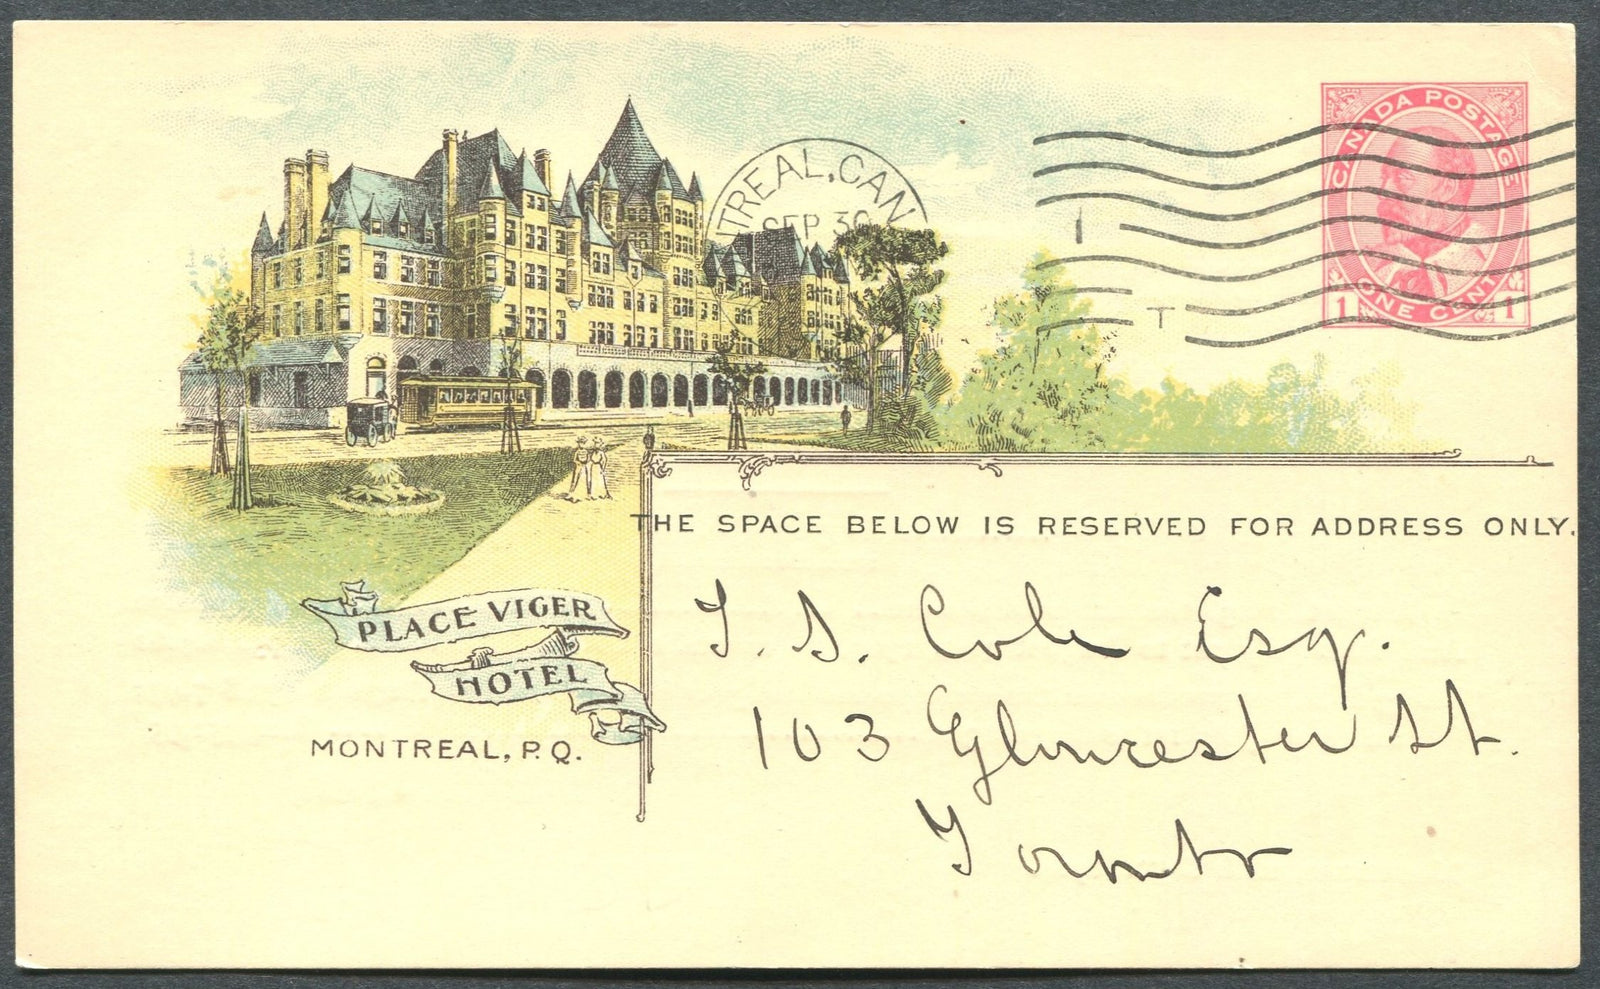 CANADA POSTAGE
1 ONE CENT 1
TREAL, CAN
SEP 30
1
T
THE SPACE BELOW IS RESERVED FOR ADDRESS ONLY.
PLACE VIGER
HOTEL
MONTREAL, P.Q.
T. S. Cole Esq.
103 Gloucester St.
Toronto